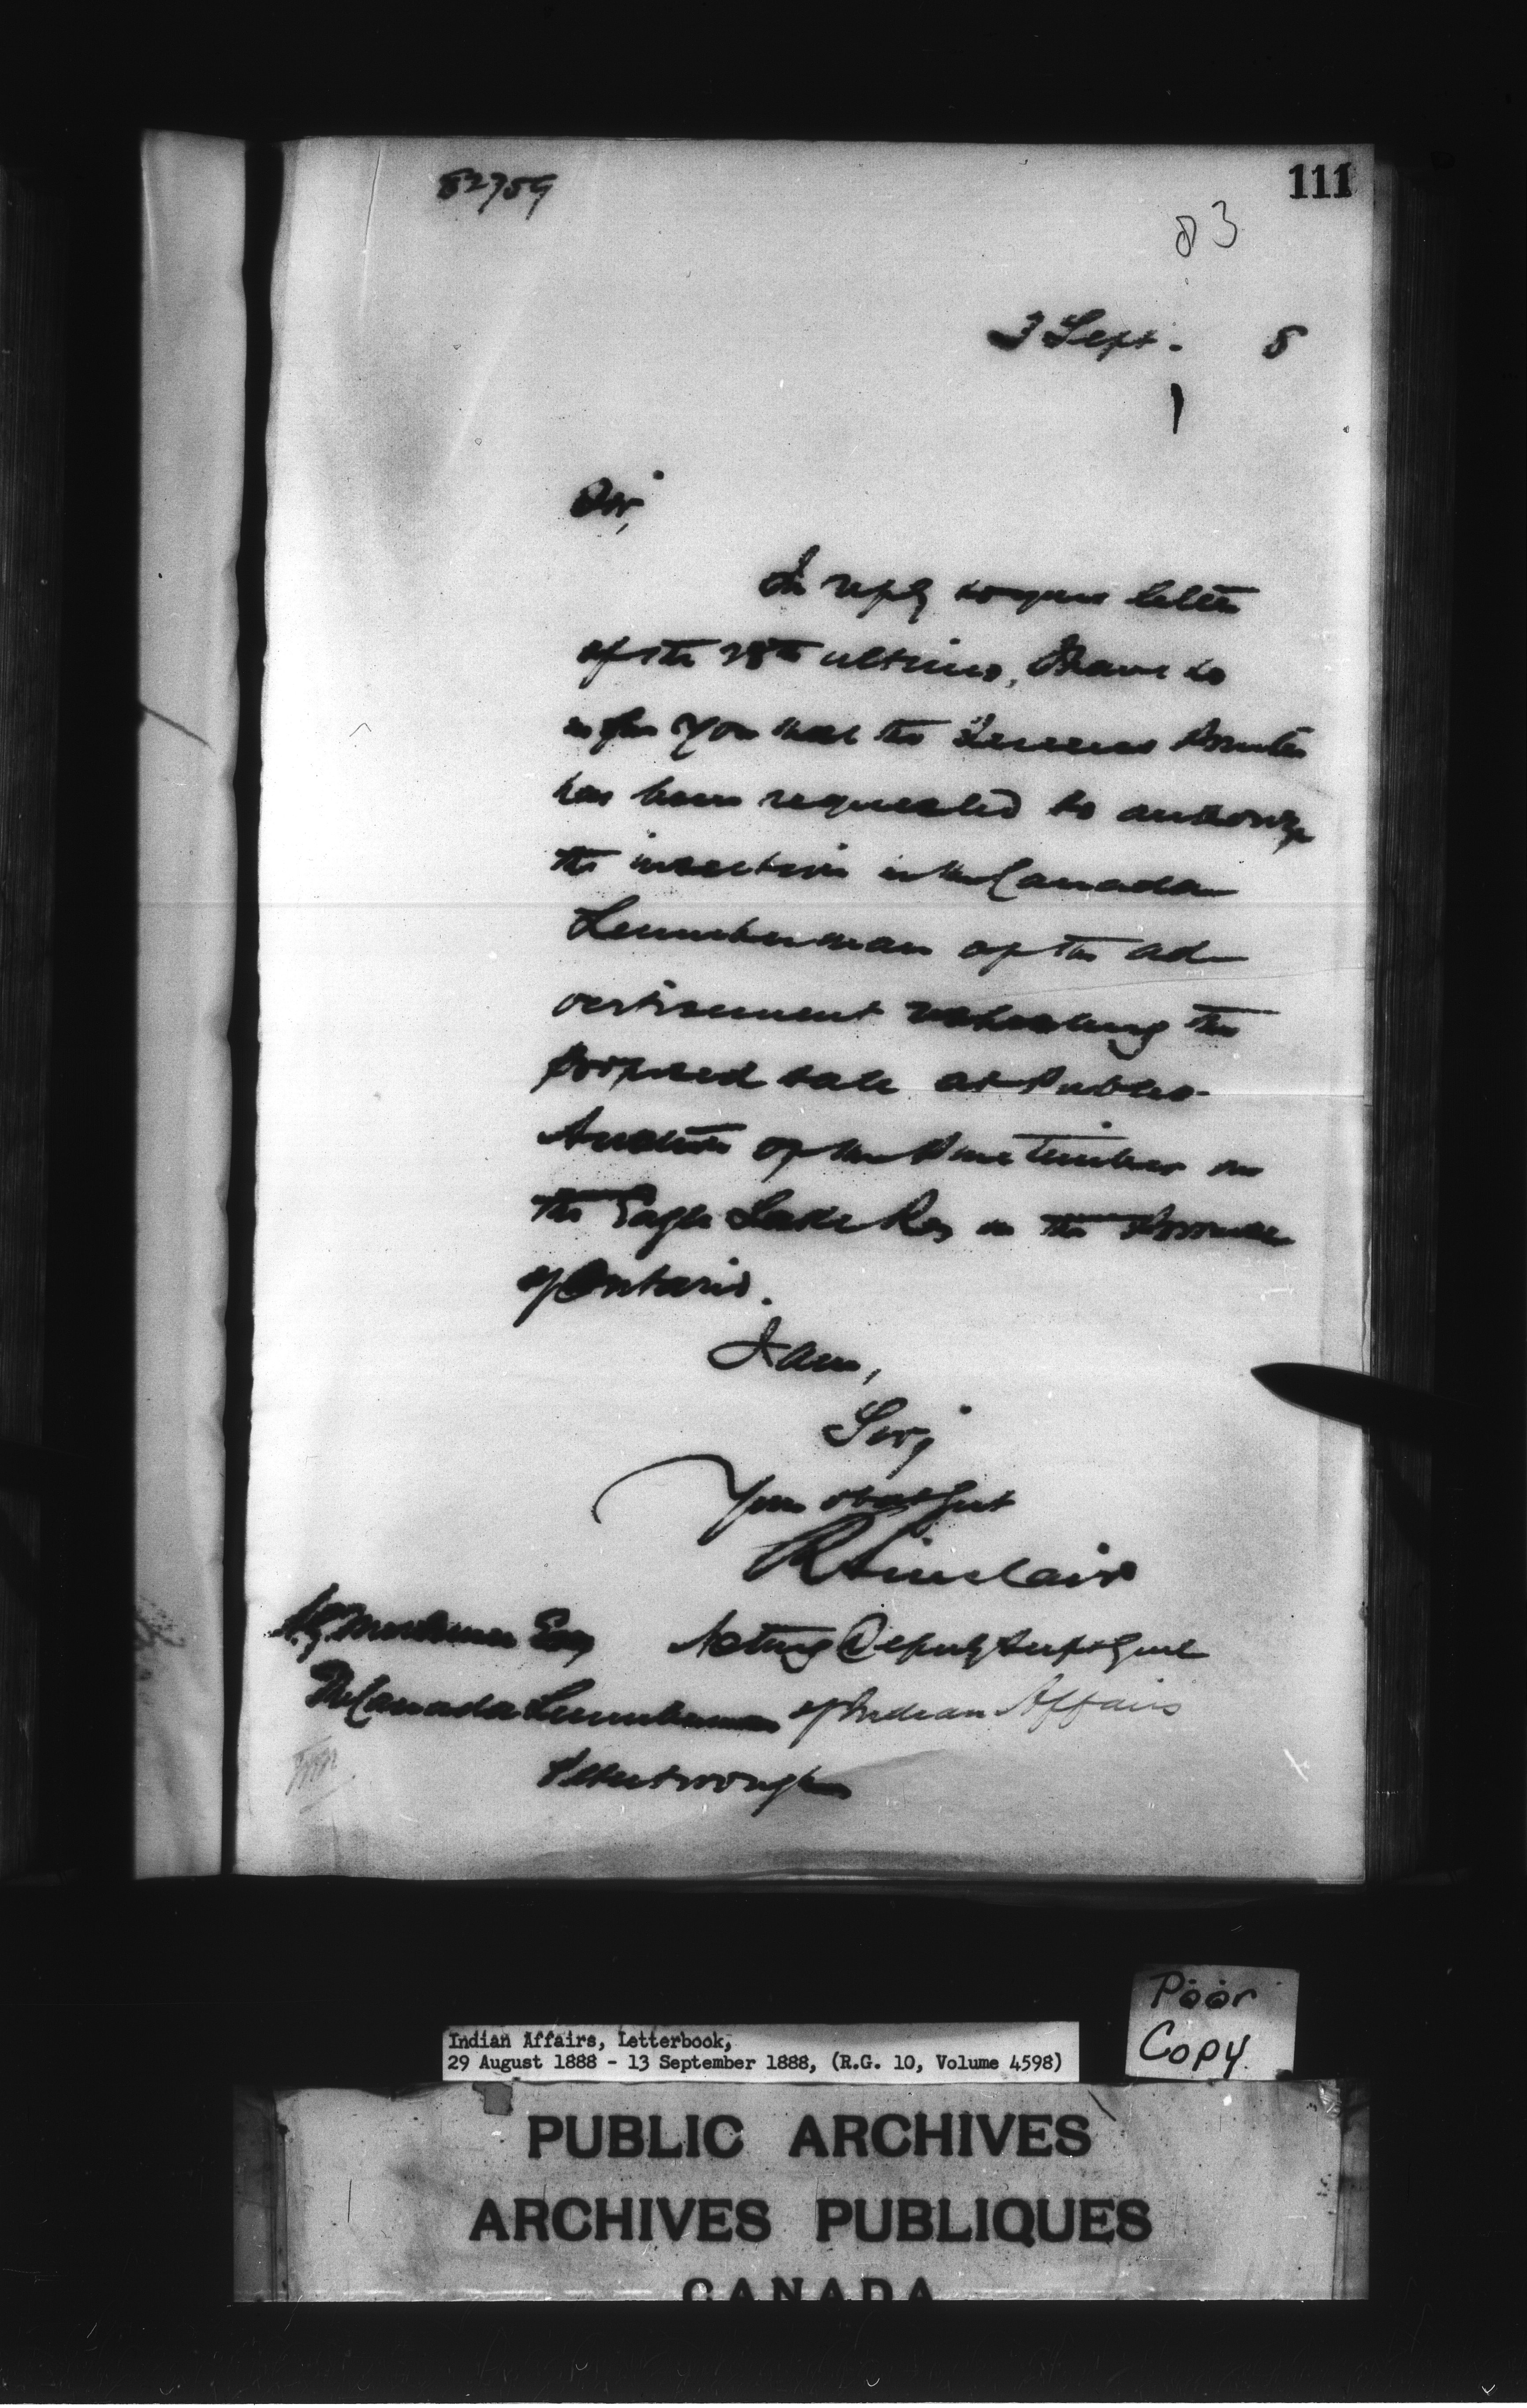 82759
111
83
3 Sept. 8
Sir,
In reply to your letter
of the 28th ultimo, I have to
inform you that the Queens Printer
has been requested to authorize
the insertion in the Canada
Lumberman of the ad
vertisement respecting the
proposed sale at Public
Auction of the Pine timber on
the Eagle Lake Res in the Province
of Ontario.
I am,
Sir,
Your obdt Servt
R Sinclair
Mortimer Esq Acting Deputy Supt Genl
The Canada Lumberman of Indian Affairs
Peterborough
Poor
Copy
Indian Affairs, Letterbook,
29 August 1888 - 13 September 1888, (R.G. 10, Volume 4598)
PUBLIC ARCHIVES
ARCHIVES PUBLIQUES
CANADA